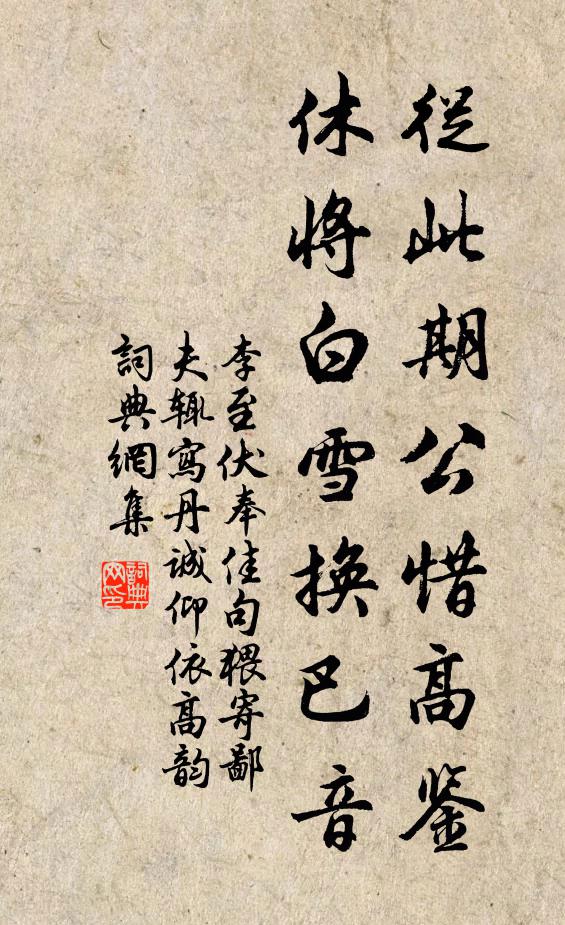 從此期公惜高鉴
休將白雪換巴音
李至伏奉佳句猥寄鄙
夫輒寫丹誠仰依高韵
詞典網集
詞典網印